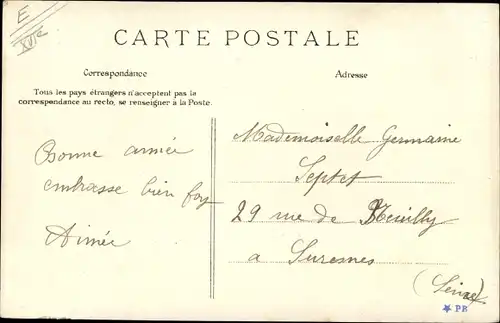 E
XVIe
CARTE POSTALE
Correspondance
Adresse
Tous les pays étrangers n'acceptent pas la
correspondance au recto, se renseigner à la Poste.
Bonne année
embrasse bien
Aimée
Mademoiselle Germaine
Septet
29 rue de Neuilly
a Suresnes
(Seine)
PB